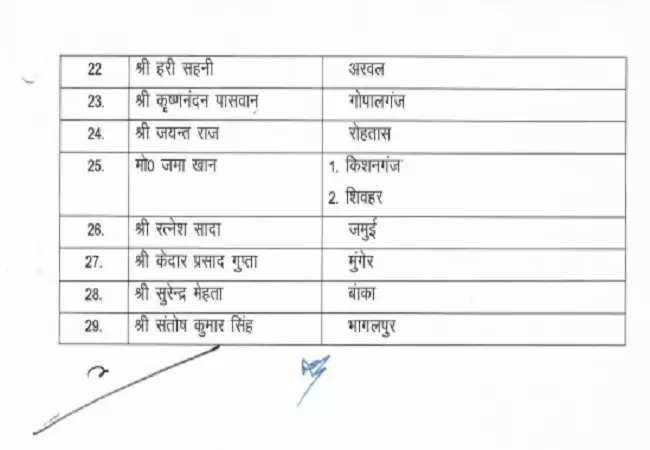 22 श्री हरी सहनी अरवल
23. श्री कृष्णनंदन पासवान गोपालगंज
24. श्री जयन्त राज रोहतास
25. मो0 जमा खान 1. किशनगंज
2. शिवहर
26. श्री रत्नेश सादा जमुई
27. श्री केदार प्रसाद गुप्ता मुंगेर
28. श्री सुरेन्द्र मेहता बांका
29. श्री संतोष कुमार सिंह भागलपुर